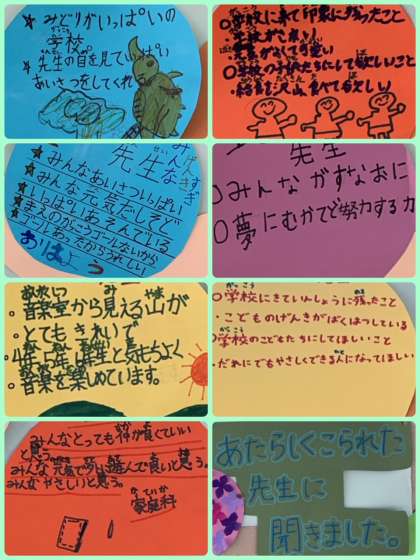 ★みどりがいっぱいの
学校。
★先生の目を見ていっぱい
あいさつをしてくれる
○学校に来て印象に残ったこと
・学校がきれい
○学校の子供たちにして欲しいこと
・給食を沢山食べて欲しい
先生
★みんなあいさついっぱい
★みんな元気だしそとで
いっぱいあそんでいる
★まえのがっこうゴールないから
ゴールあったからうれしい
ありがとう
先生
○みんながすなおに
○夢にむかって努力する力
・音楽室から見える山が
・とてもきれいで
・4年、5年、6年生と気もちよく
・音楽を楽しめています。
○学校にきていんしょうに残ったこと
・こどものげんきがばくはつしている
○学校のこどもたちにしてほしいこと
・だれにでもやさしくできる人になってほしい
みんなとっても仲が良くていい
と思う。
みんな元気で外で遊んで良いと思う。
みんなやさしいと思う。
家庭科
あたらしくこられた
先生に
聞きました。